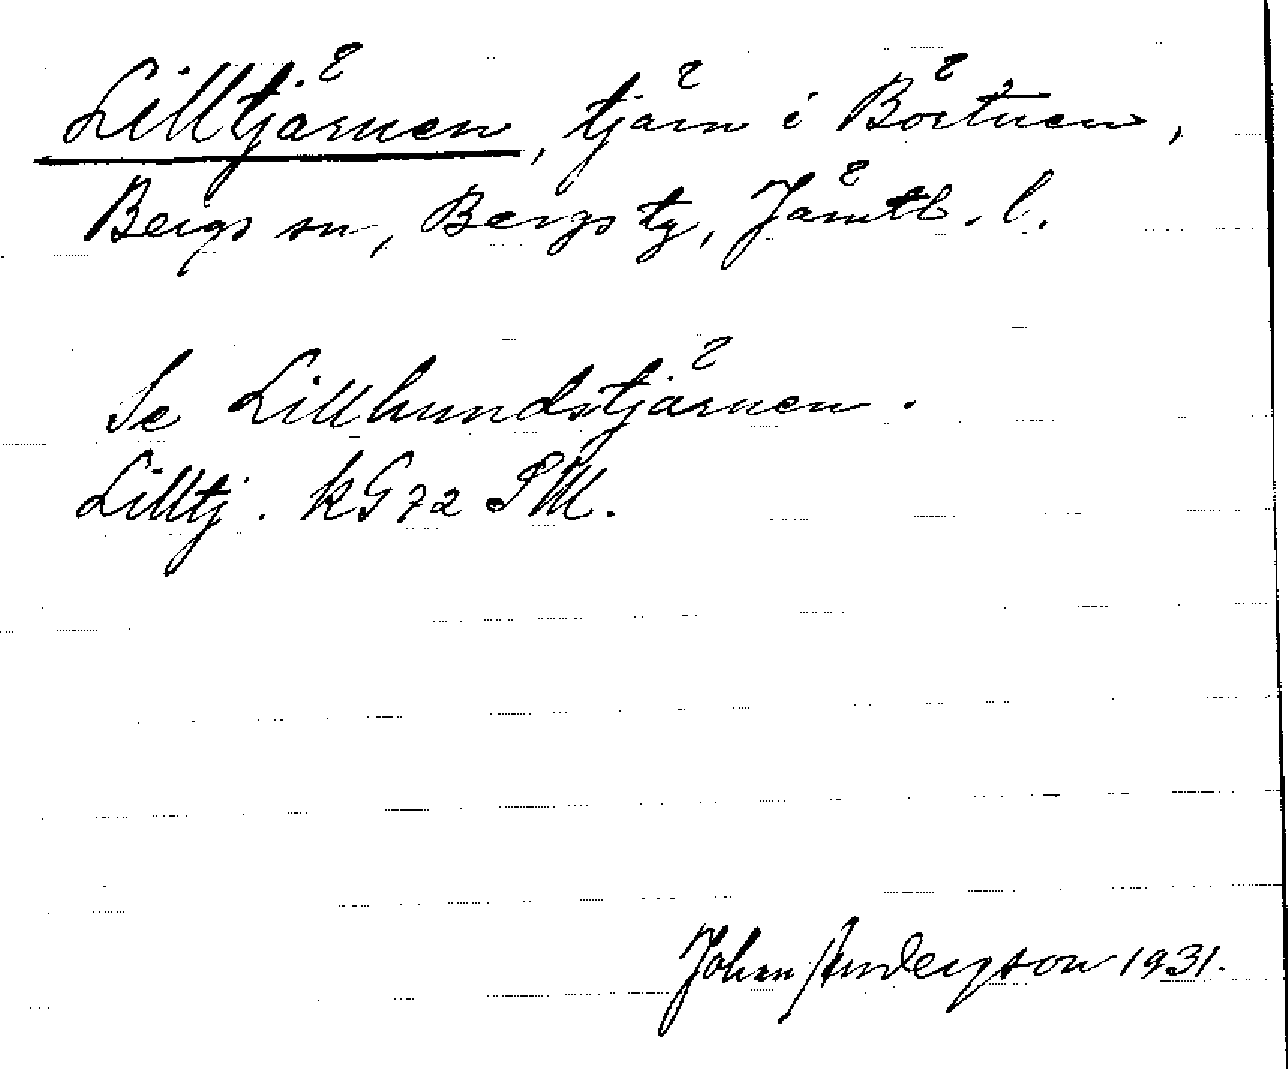 Lilltjärnen, tjärn i Börtnen,
Bergs sn, Bergs tg, Jämtl. l.
Se Lillhundstjärnen.
Lilltj. kG72 SM.
Johan Anderson 1931.